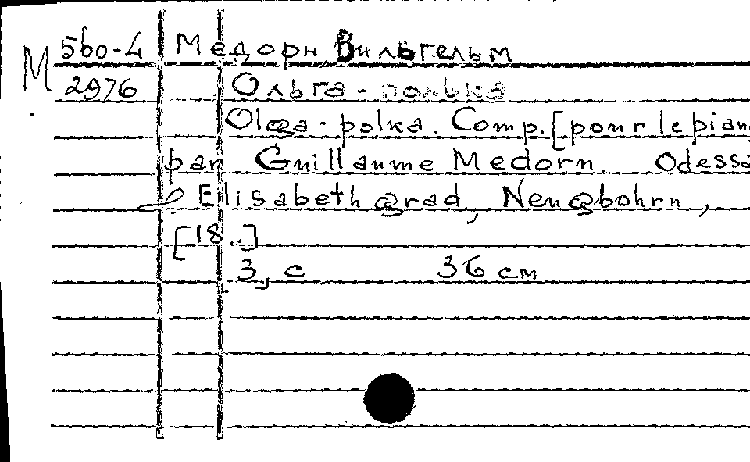 М 560-4 Медорн, Вильгельм
2976 Ольга-полька
Olga-polka. Comp. [pour le pian
par Guillaume Medorn. Odessa
Elisabethgrad, Neugbohrn,
[18..]
3 с 36 cm